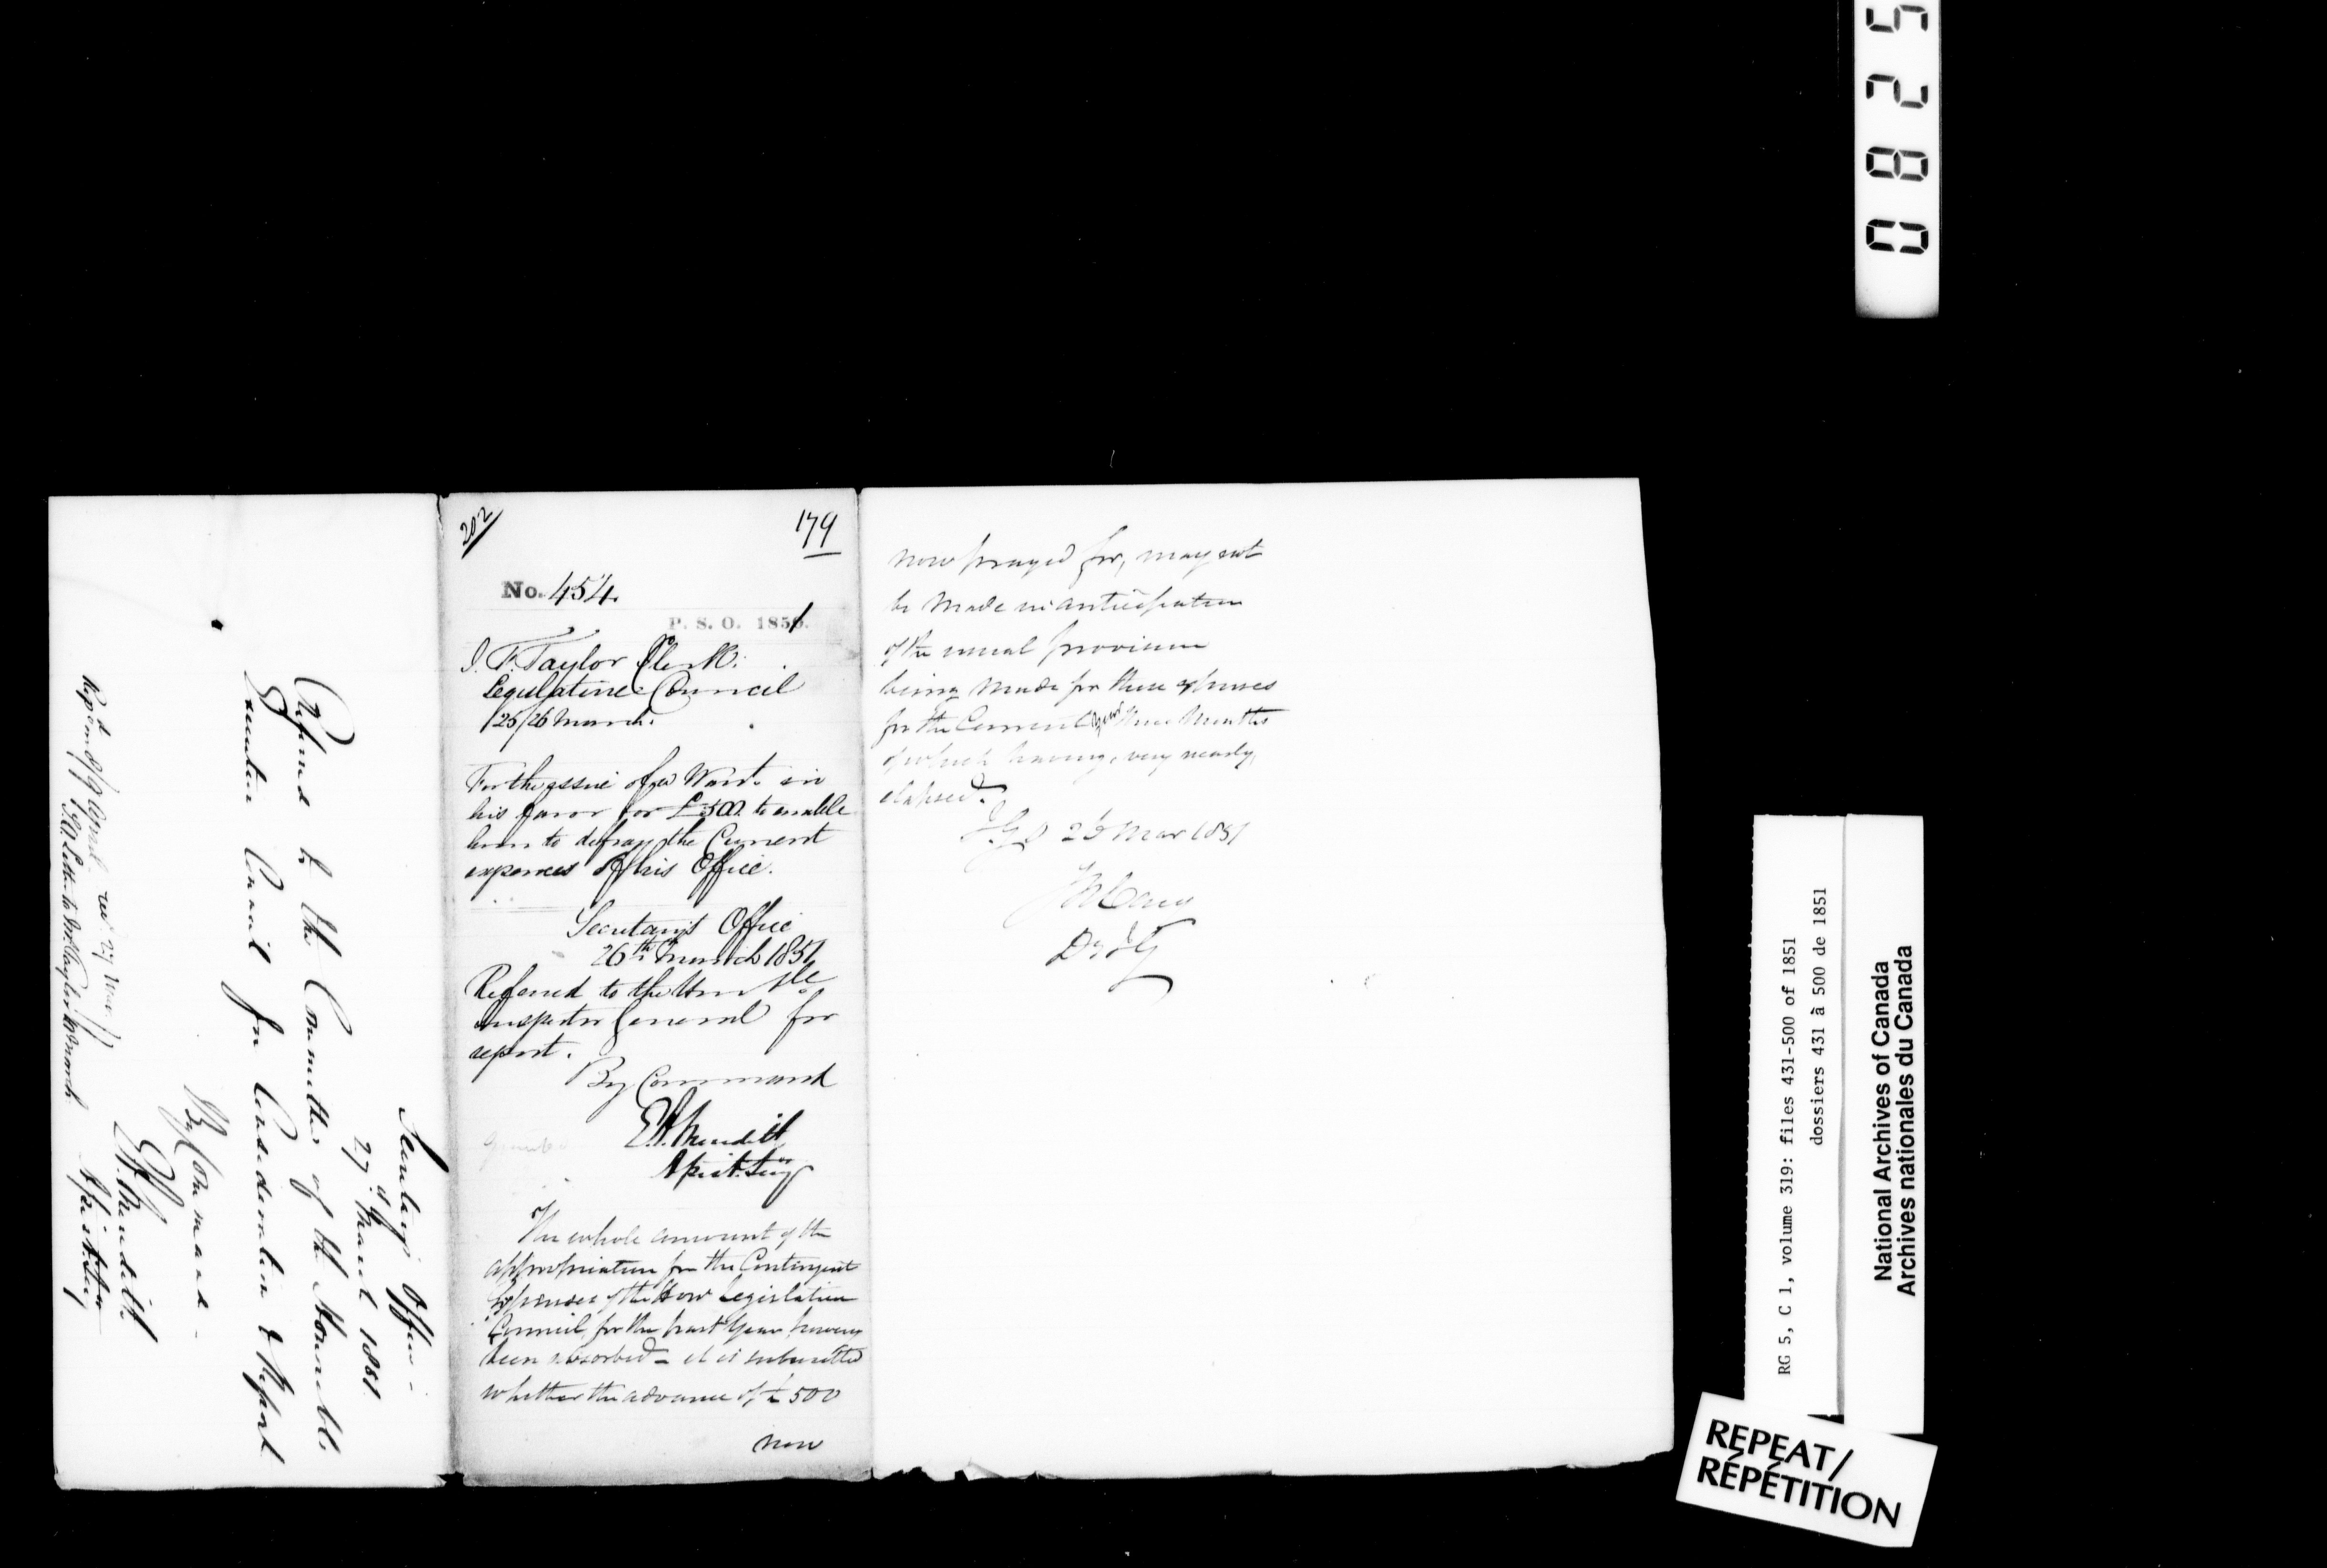 202
179
No. 454.
P. S. O. 1851.
J. F. Taylor Clerk.
Legislative Council
25/26 March.
For the issue of a Warrt. in
his favor for £500. to enable
him to defray the Current
expences of his Office.
Secretary's Office
26th March 1851
Referred to the Honble
Inspector General for
report.
By Command
E. A. Meredith
Assist. Secy
The whole amount of the
appropriation for the Contingent
Expenses of the Hon Legislative
Council, for the past Year having
been absorbed - it is submitted
whether the advance of £500
now
now prayed for, may not
be Made in anticipation
of the usual provision
being Made for these expenses
for the Current Year three Months
of which having, very nearly,
elapsed.
Mar 1851
Secretary's Office
27th March 1851
Referred to the Committee of the Honorable
Executive Council for Consideration & Report
By Command
E. A. Meredith
Assist. Secy
April
Letter to Mr. Taylor
0825
RG 5, C 1, volume 319: files 431-500 of 1851
dossiers 431 à 500 de 1851
National Archives of Canada
Archives nationales du Canada
REPEAT/
RÉPÉTITION